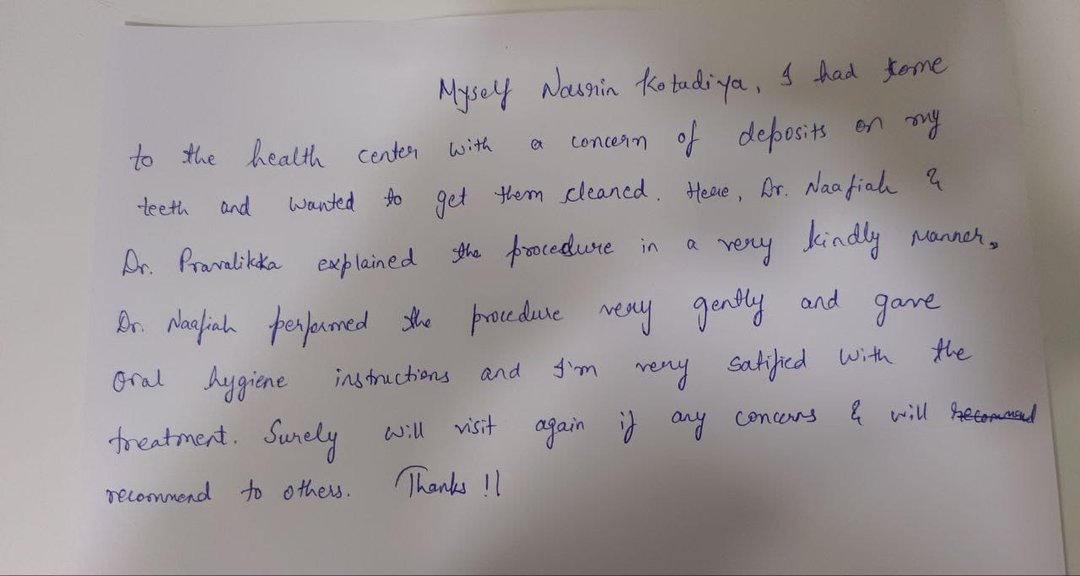 Myself Nasrin Kotadiya, I had come
to the health center with a concern of deposits on my
teeth and wanted to get them cleaned. Here, Dr. Naafiah &
Dr. Pravalikka explained the procedure in a very kindly manner,
Dr. Naafiah performed the procedure very gently and gave
oral hygiene instructions and I'm very satified with the
treatment. Surely will visit again if any concerns & will recommend
recommend to others. Thanks !!